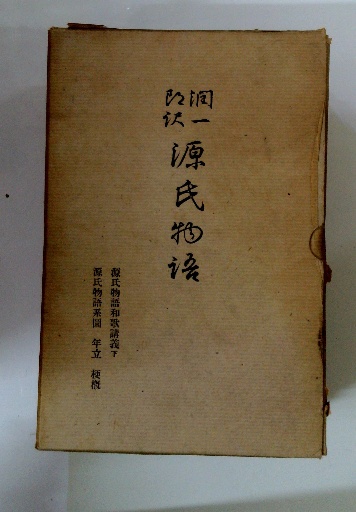 潤一
郎訳
源氏物語
源氏物語和歌講義下
源氏物語系図 年立 梗概